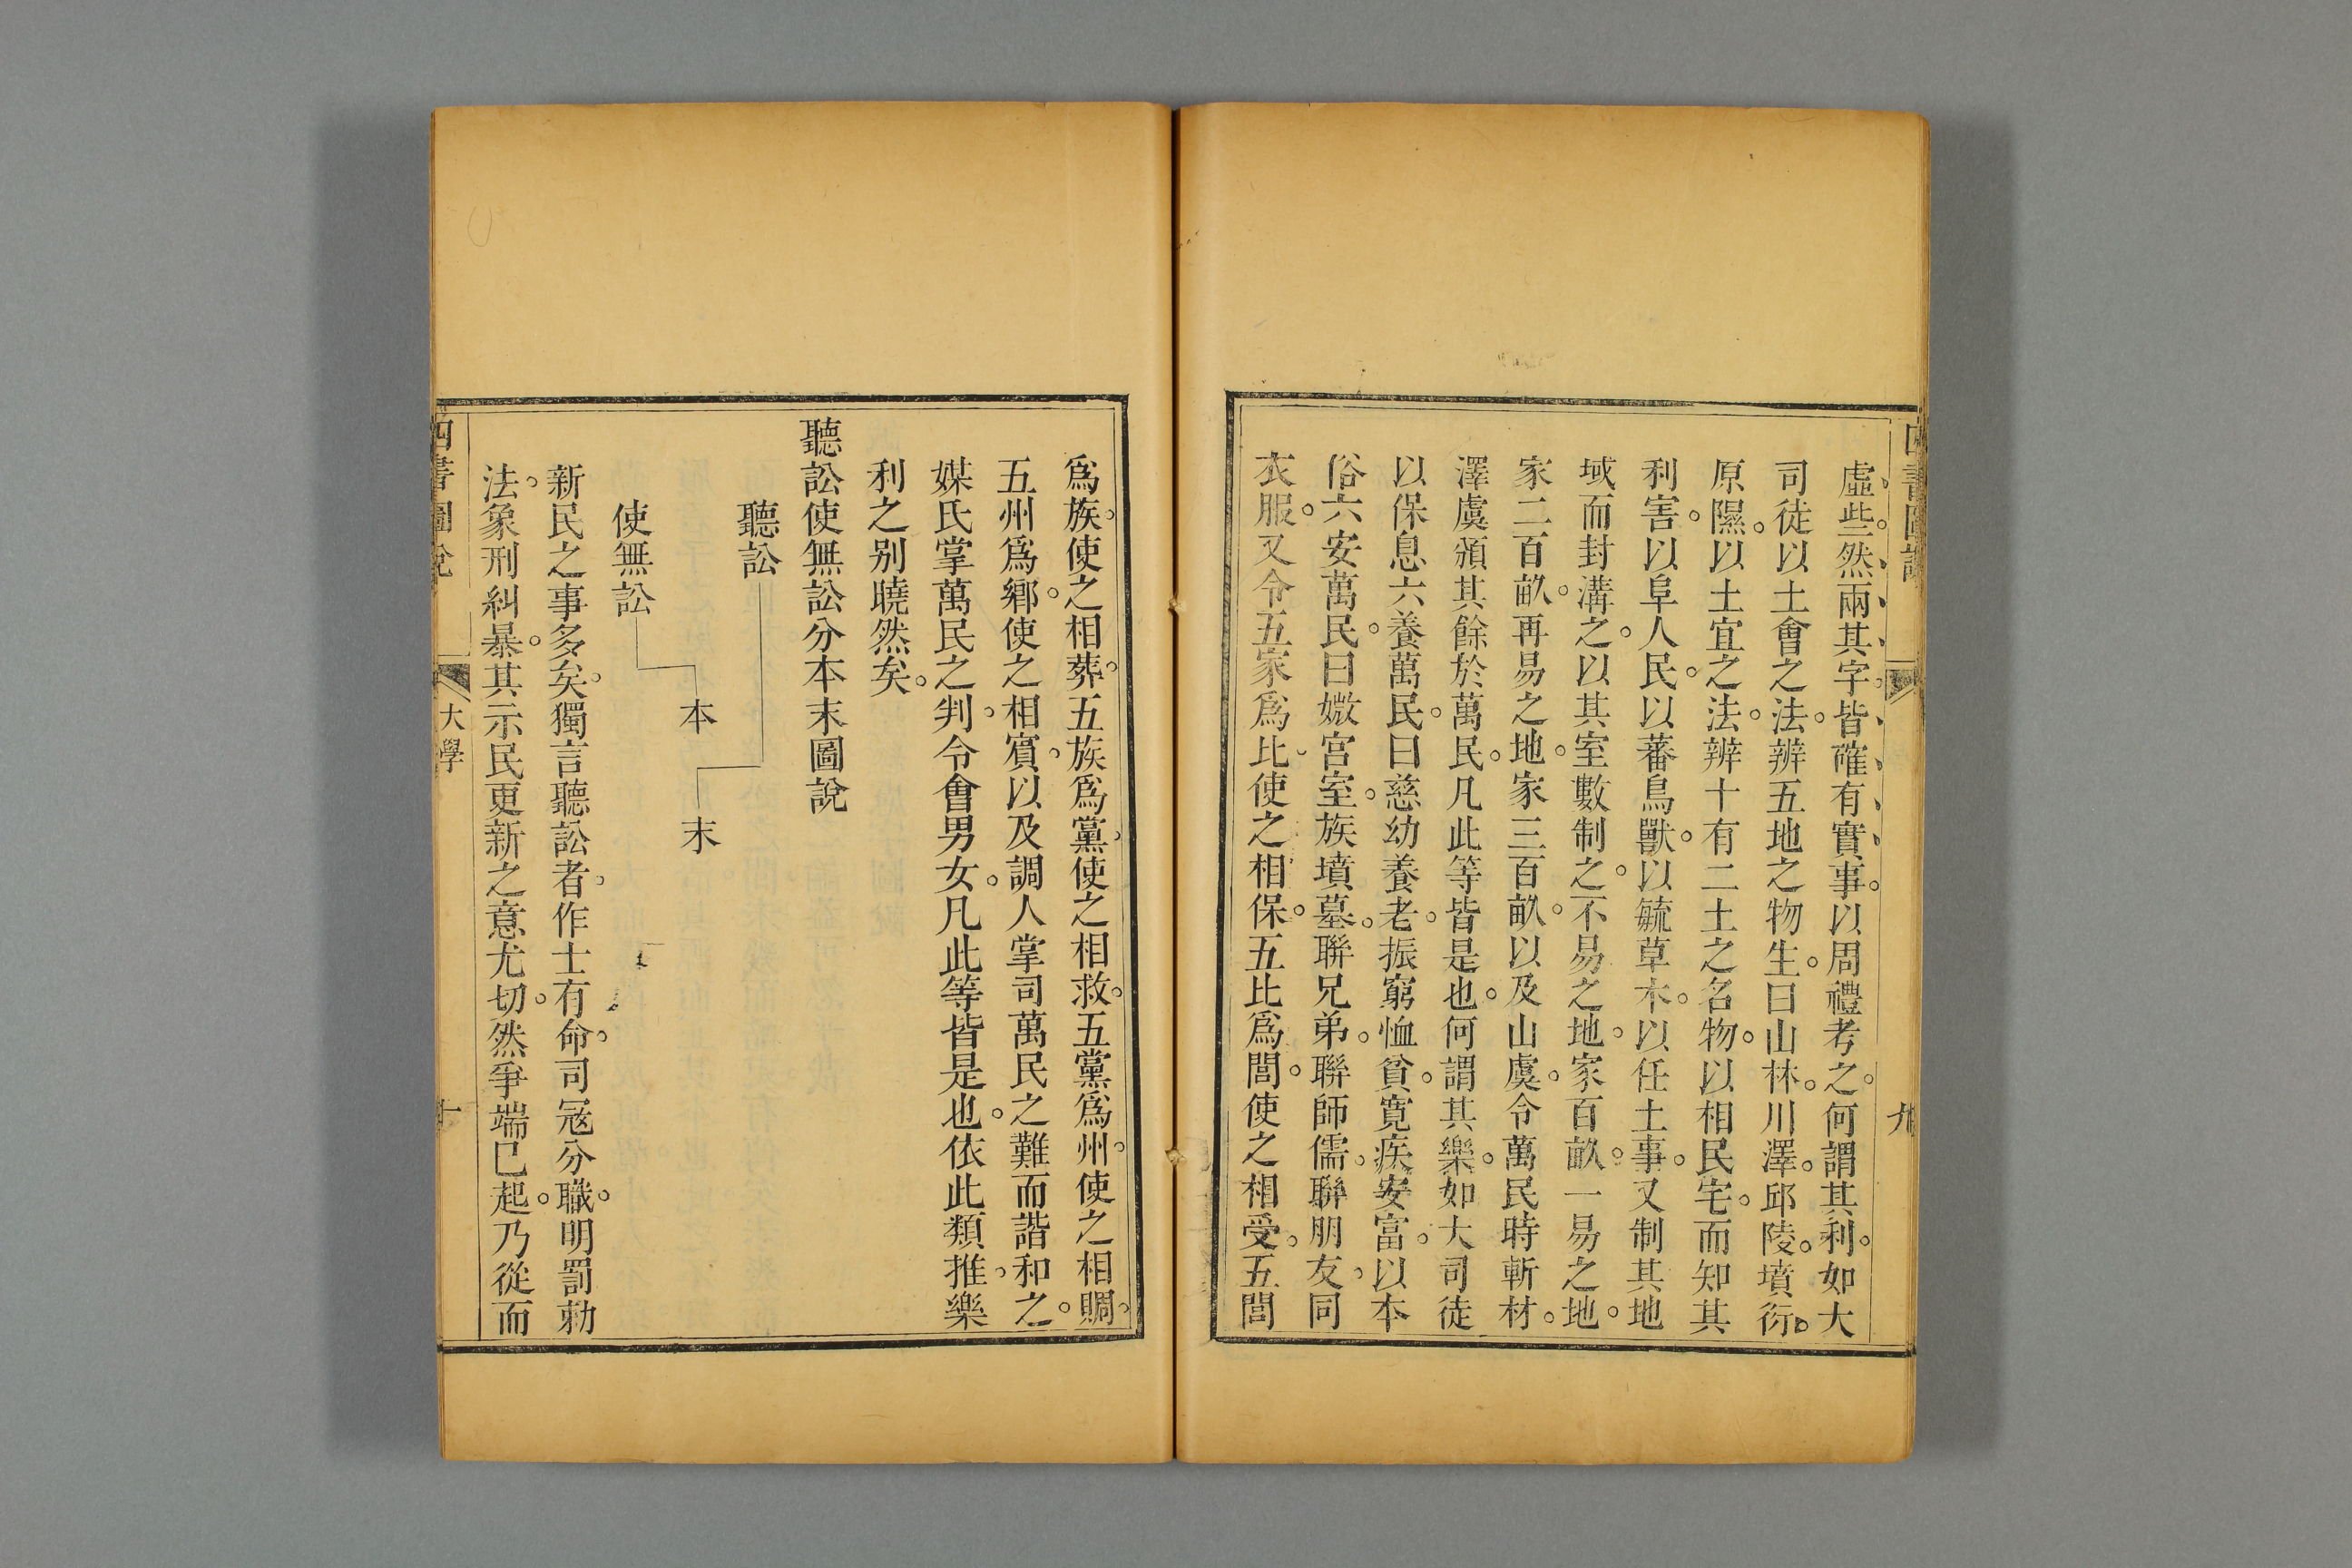 四書圖說
九
虛些然兩其字皆確有實事。以周禮考之。何謂其利。如大
司徒以土會之法。辨五地之物生。曰山林。川澤。邱陵。墳衍。
原隰。以土宜之法。辨十有二土之名物。以相民宅。而知其
利害。以阜人民。以蕃鳥獸。以毓草木。以任土事。又制其地
域而封溝之。以其室數制之。不易之地。家百畝。一易之地。
家二百畝。再易之地。家三百畝。以及山虞。令萬民時斬材。
澤虞頒其餘於萬民。凡此等皆是也。何謂其樂。如大司徒
以保息六養萬民。曰慈幼養老。振窮恤貧。寬疾安富。以本
俗六安萬民。曰媺宮室。族墳墓。聯兄弟。聯師儒。聯朋友。同
衣服。又令五家爲比。使之相保。五比爲閭。使之相受。五閭
爲族。使之相葬。五族爲黨。使之相救。五黨爲州。使之相賙。
五州爲鄉。使之相賓。以及調人掌司萬民之難而諧和之。
媒氏掌萬民之判。令會男女。凡此等皆是也。依此類推。樂
利之別曉然矣。
聽訟使無訟分本末圖說
聽訟
末
本
使無訟
新民之事多矣。獨言聽訟者。作士有命。司寇分職。明罰勅
法。象刑糾暴。其示民更新之意尤切。然爭端已起。乃從而
四書圖說
大學
十